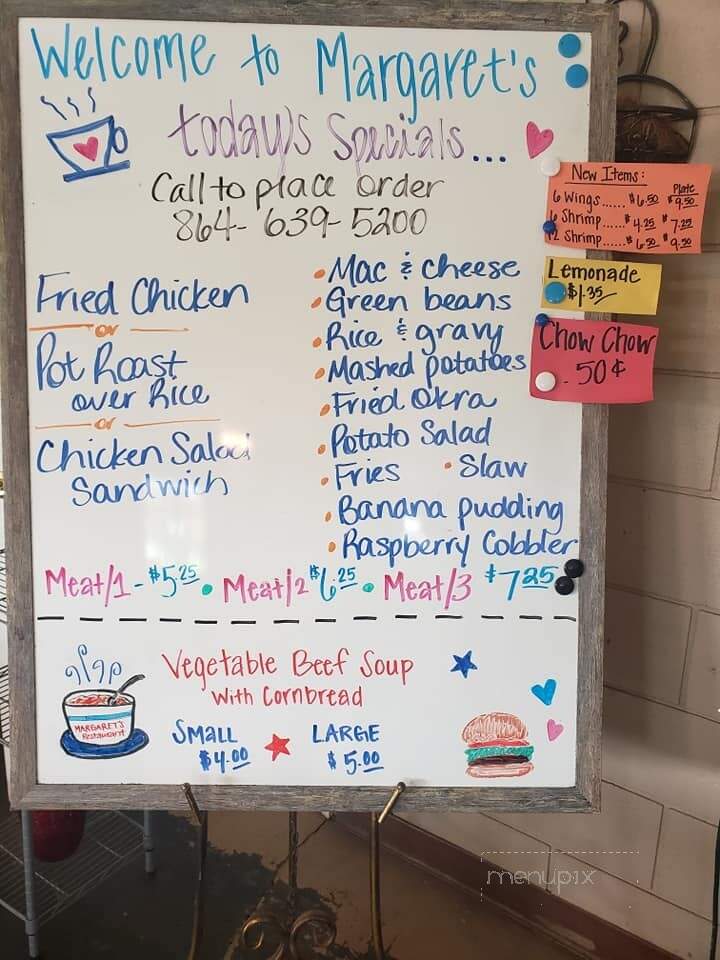 Welcome to Margaret's
today's Specials...
Call to place order
864-639-5200
Fried Chicken
or
Pot Roast
over Rice
or
Chicken Salad
Sandwich
• Mac & cheese
• Green beans
• Rice & gravy
• Mashed potatoes
• Fried Okra
• Potato Salad
• Fries • Slaw
• Banana pudding
• Raspberry Cobbler
Meat/1 - $5.25 • Meat/2 $6.25 • Meat/3 $7.25
Vegetable Beef Soup
with Cornbread
SMALL LARGE
$4.00 $5.00
MARGARET'S
Restaurant
New Items:
Plate
6 Wings...... $6.50 $9.50
6 Shrimp...... $4.25 $7.25
12 Shrimp...... $6.50 $9.50
Lemonade
$1.35
Chow Chow
.50¢
menupix